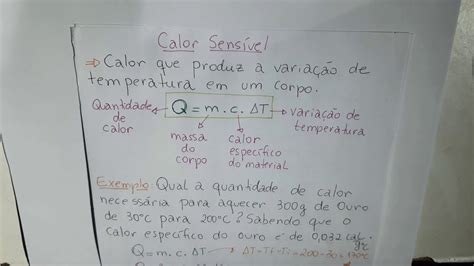 Calor Sensível
⇒ Calor que produz a variação de
temperatura em um corpo.
Quantidade de calor ← Q = m. c. ΔT → variação de temperatura
massa do corpo
calor específico do material
Exemplo: Qual a quantidade de calor
necessária para aquecer 300g de Ouro
de 30°C para 200°C? Sabendo que o
calor específico do ouro é de 0,032 cal/g°C
Q = m. c. ΔT → ΔT = Tf - Ti = 200-30 = 170°C